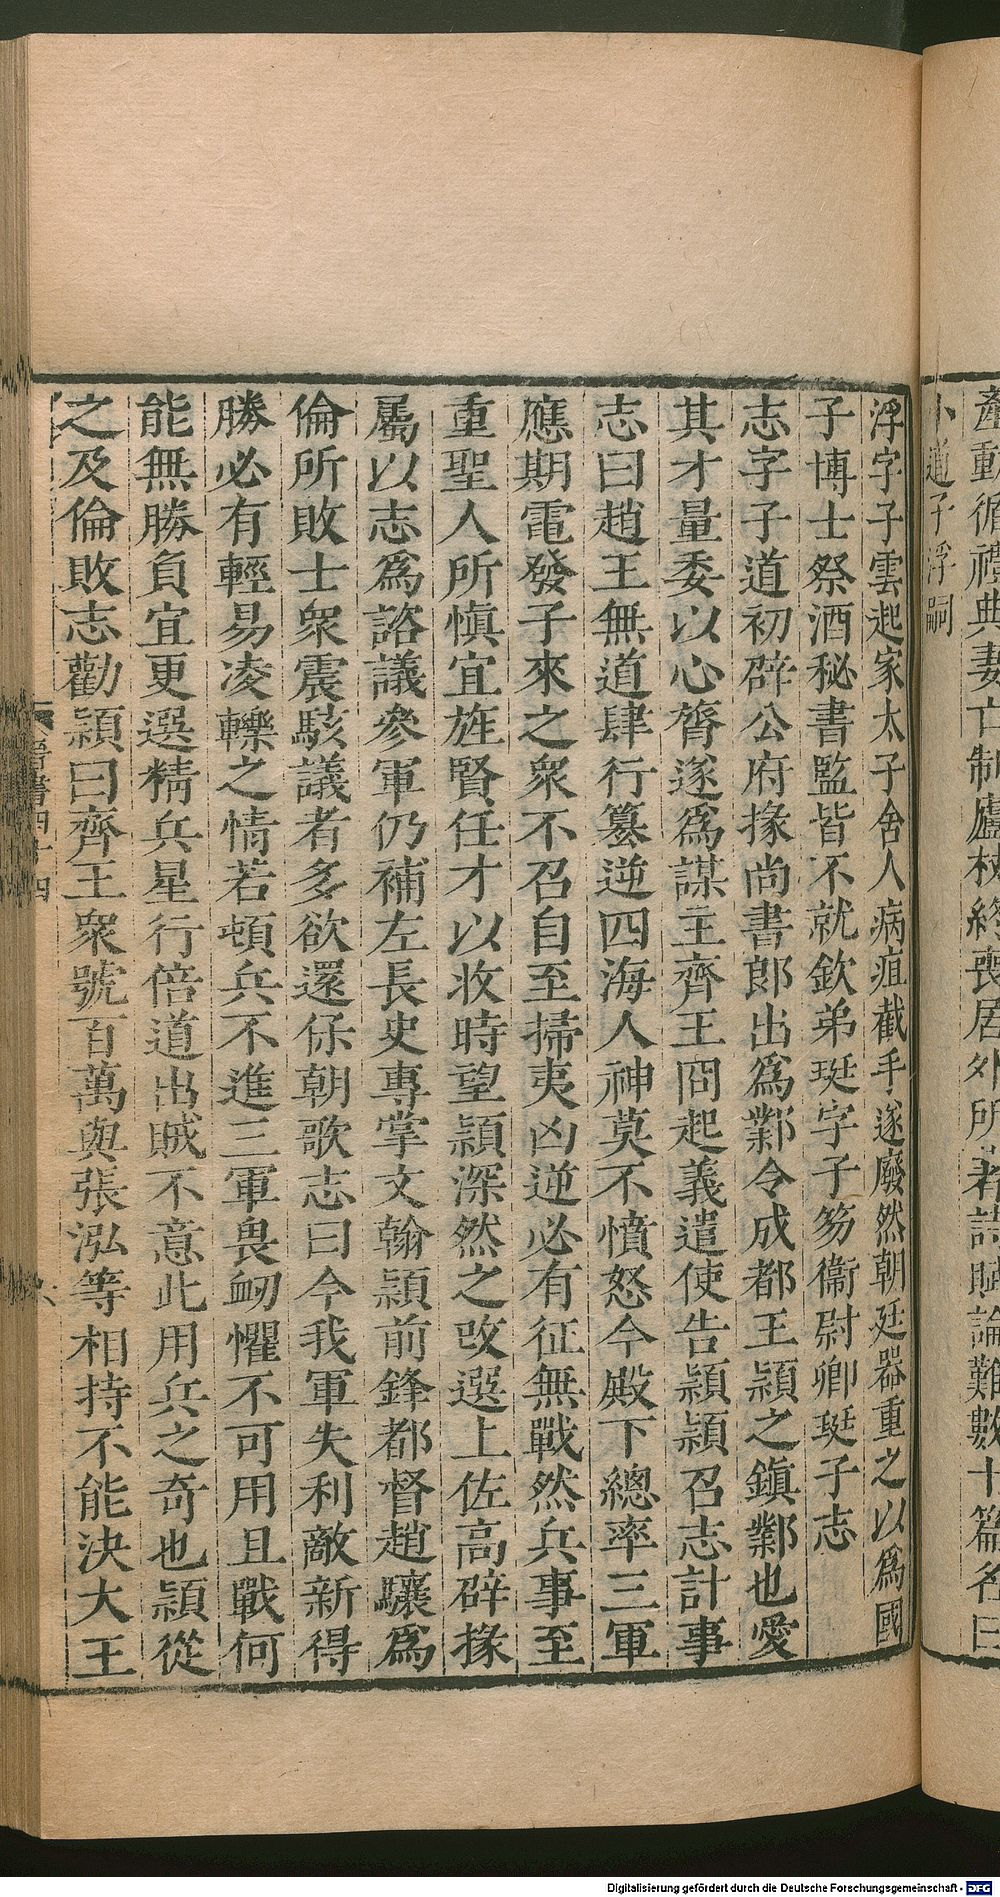 產動循禮典妻亡制廬杖終喪居外所著詩賦論難數十篇名曰
小道子浮嗣
浮字子雲起家太子舍人病疽截手遂廢然朝廷器重之以爲國
子博士祭酒秘書監皆不就欽弟珽字子笏衞尉卿珽子志
志字子道初辟公府掾尚書郎出爲鄴令成都王穎之鎮鄴也愛
其才量委以心膂遂爲謀主齊王冏起義遣使告穎穎召志計事
志曰趙王無道肆行簒逆四海人神莫不憤怒今殿下總率三軍
應期電發子來之衆不召自至掃夷凶逆必有征無戰然兵事至
重聖人所慎宜旌賢任才以收時望穎深然之改選上佐高辟掾
屬以志爲諮議參軍仍補左長史專掌文翰穎前鋒都督趙驤爲
倫所敗士衆震駭議者多欲還保朝歌志曰今我軍失利敵新得
勝必有輕易凌轢之情若頓兵不進三軍畏衂懼不可用且戰何
能無勝負宜更選精兵星行倍道出賊不意此用兵之奇也穎從
之及倫敗志勸穎曰齊王衆號百萬與張泓等相持不能決大王
晉書四十四
八
Digitalisierung gefördert durch die Deutsche Forschungsgemeinschaft - DFG